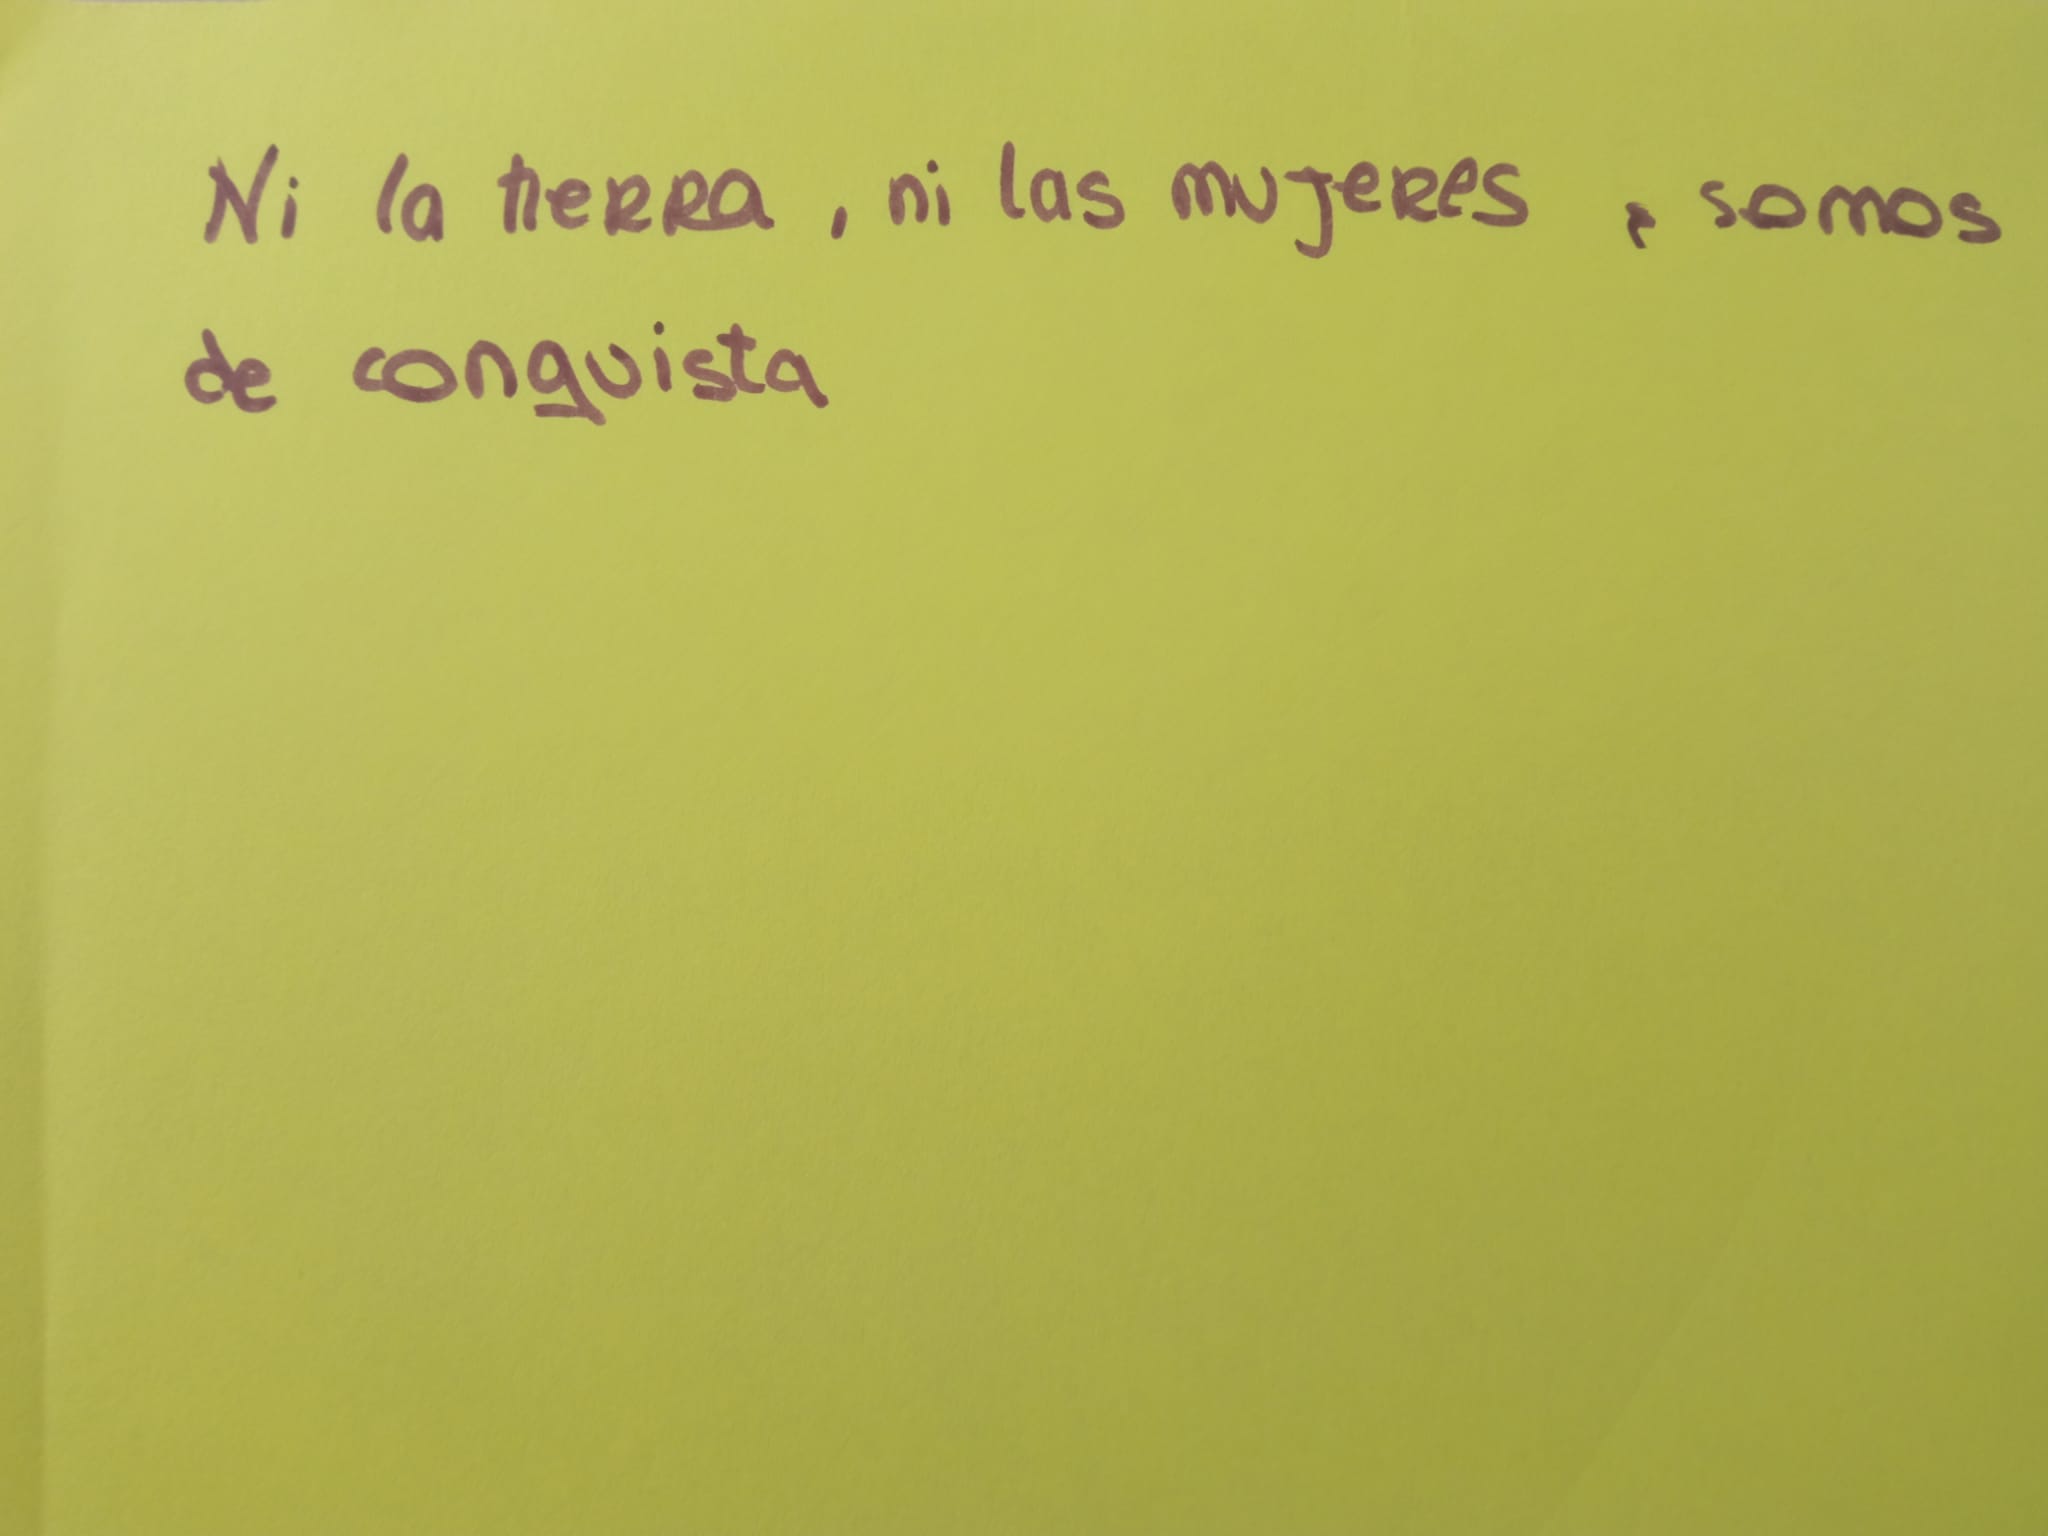 Ni la tierra, ni las mujeres, somos
de conquista